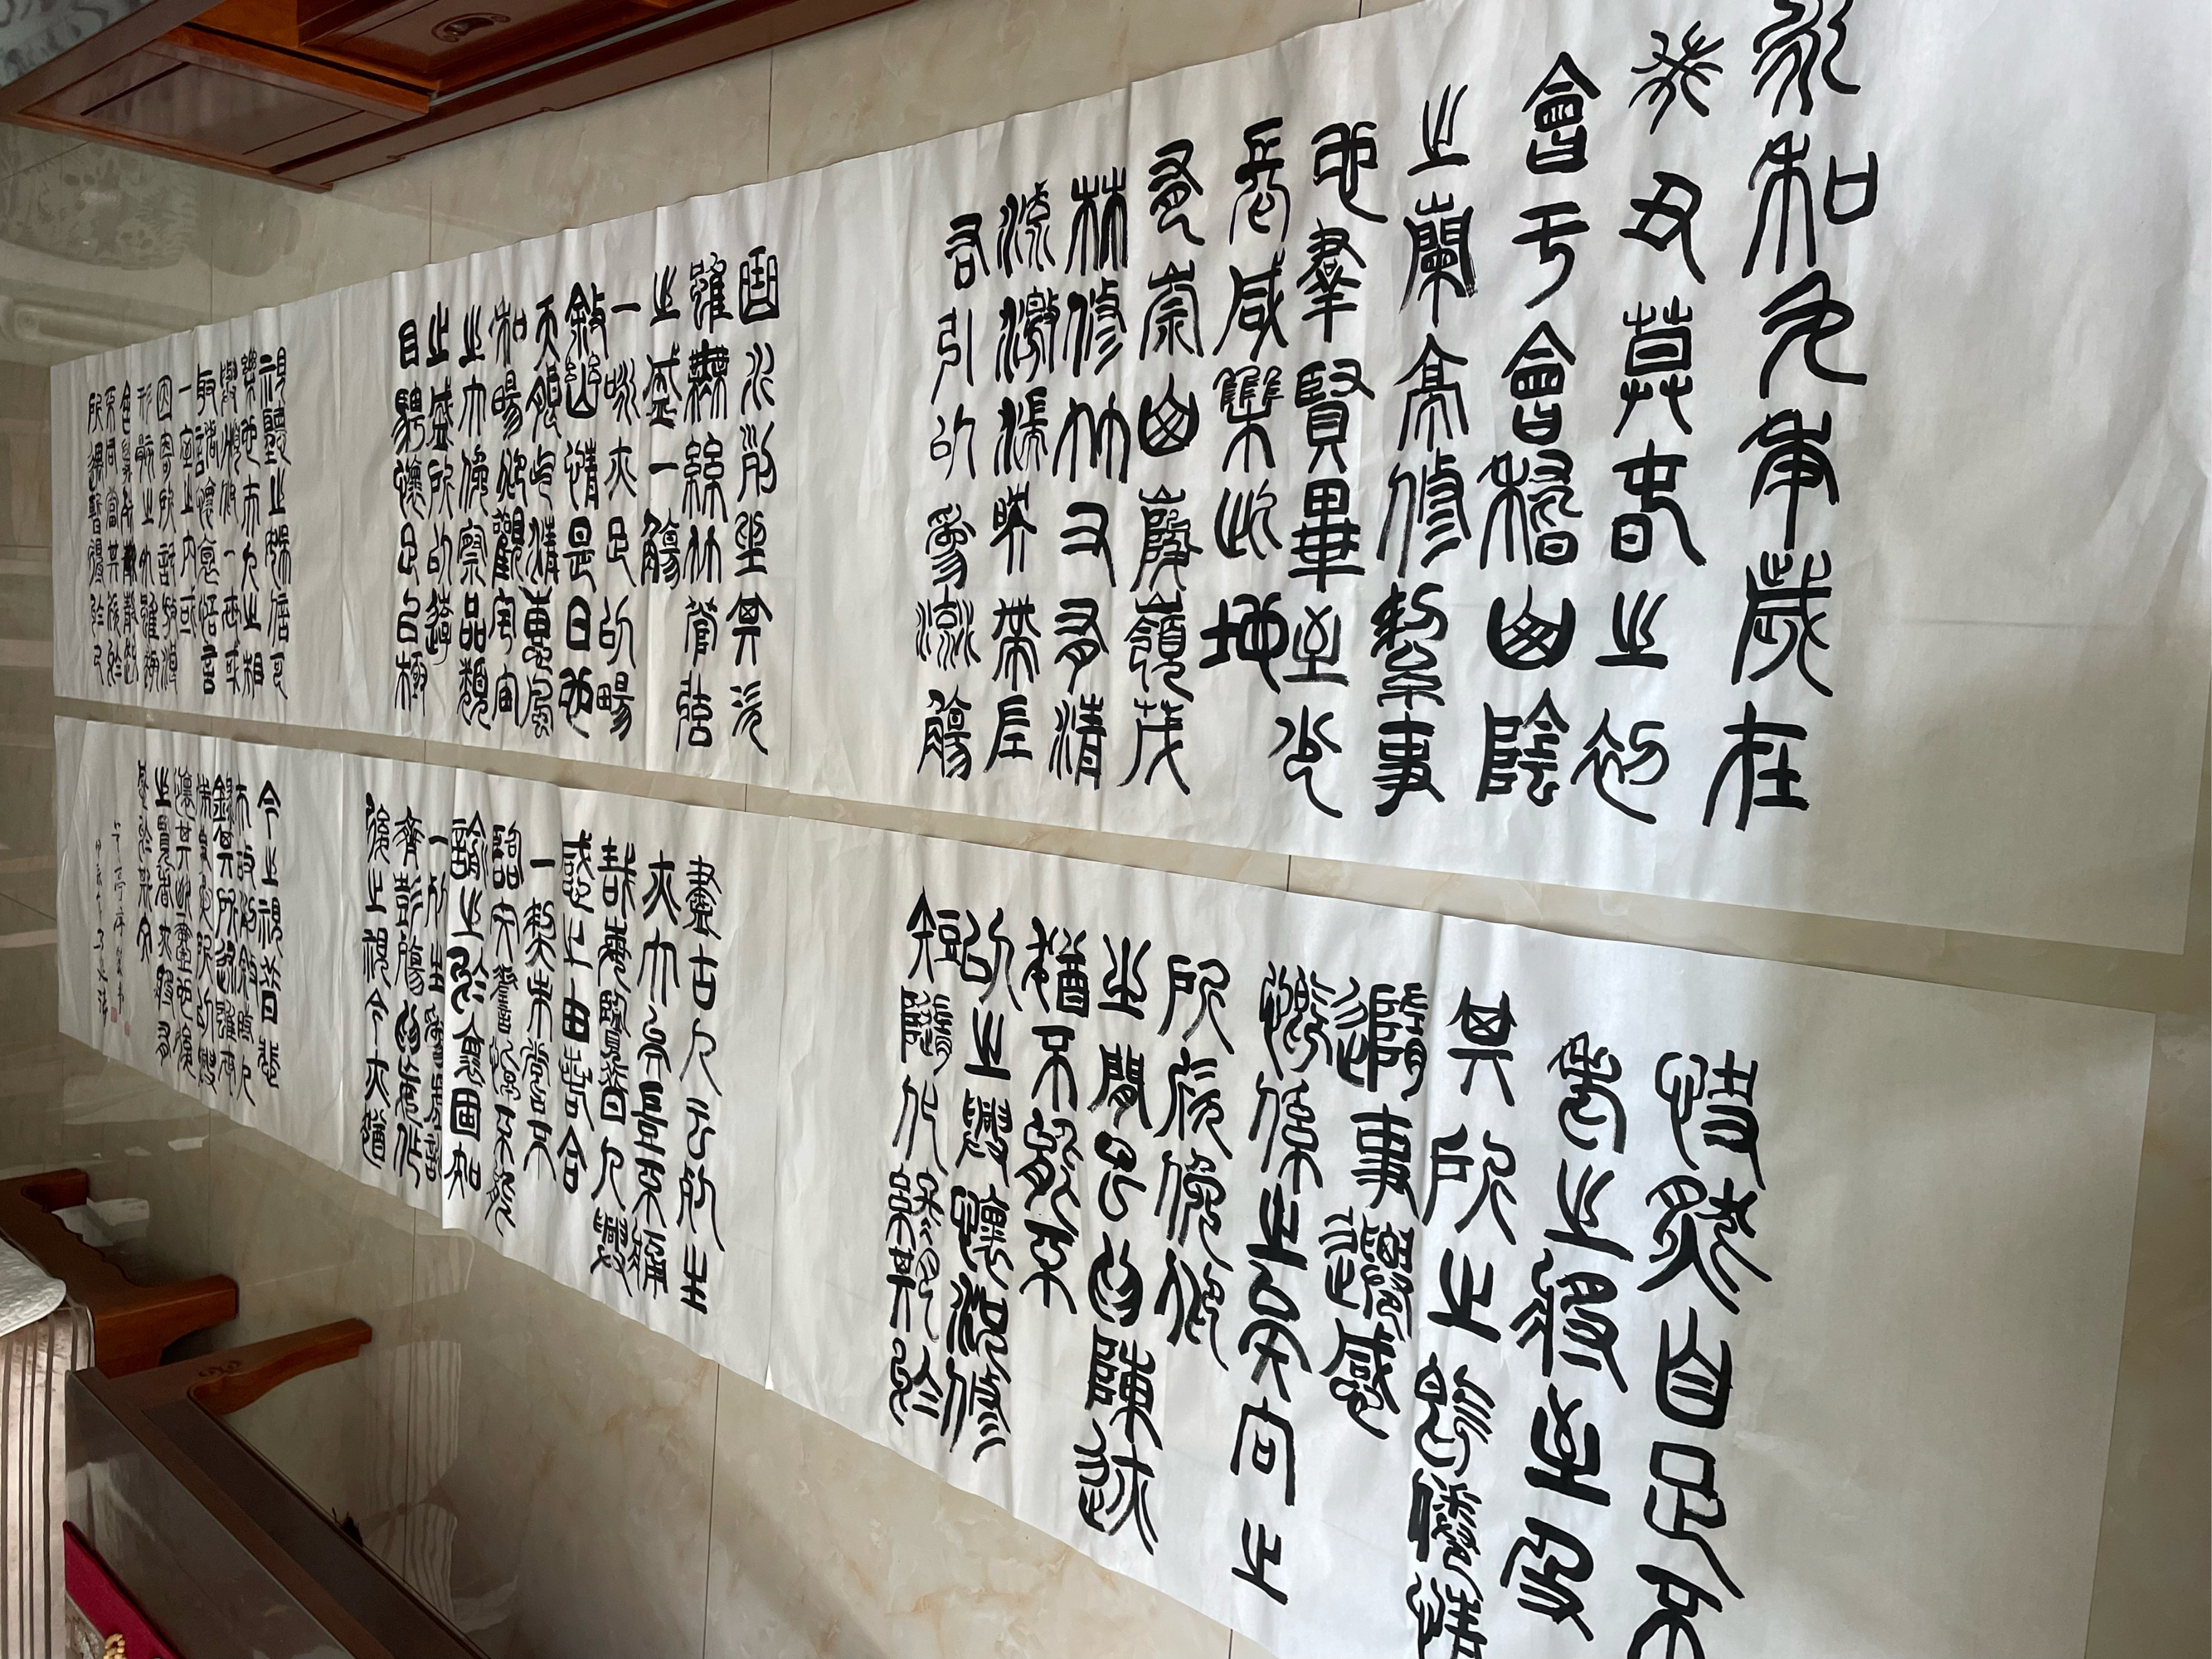 永和九年歲在
癸丑莫春之初
會于會稽山陰
之蘭亭修禊事
也羣賢畢至少
長咸集此地
有崇山峻嶺茂
林修竹又有清
流激湍暎帶左
右引以為流觴
曲水列坐其次
雖無絲竹管弦
之盛一觴
一詠亦足以暢
敘幽情是日也
天朗气清惠風
和暢仰觀宇宙
之大俯察品類
之盛所以遊
目騁懷足以極
視聽之娛信可
樂也夫人之相
與俯仰一世或
取諸懷抱悟言
一室之內或
因寄所託放浪
形骸之外雖趣
舍萬殊靜躁
不同當其欣於
所遇暫得於己
快然自足不
老之將至及
其所之既惓情
隨事遷感
慨係之矣向之
所欣俛仰
之間以為陳迹
猶不能不
以之興懷況修
短隨化終期於
盡古人云死生
亦大矣豈不痛
哉每覽昔人興
感之由若合
一契未嘗不
臨文嗟悼不能
喻之於懷固知
一死生為虛誕
齊彭殤為妄作
後之視今亦猶
今之視昔悲
夫故列敘時人
錄其所述雖世
殊事異所以興
懷其致一也後
之覽者亦將有
感於斯文